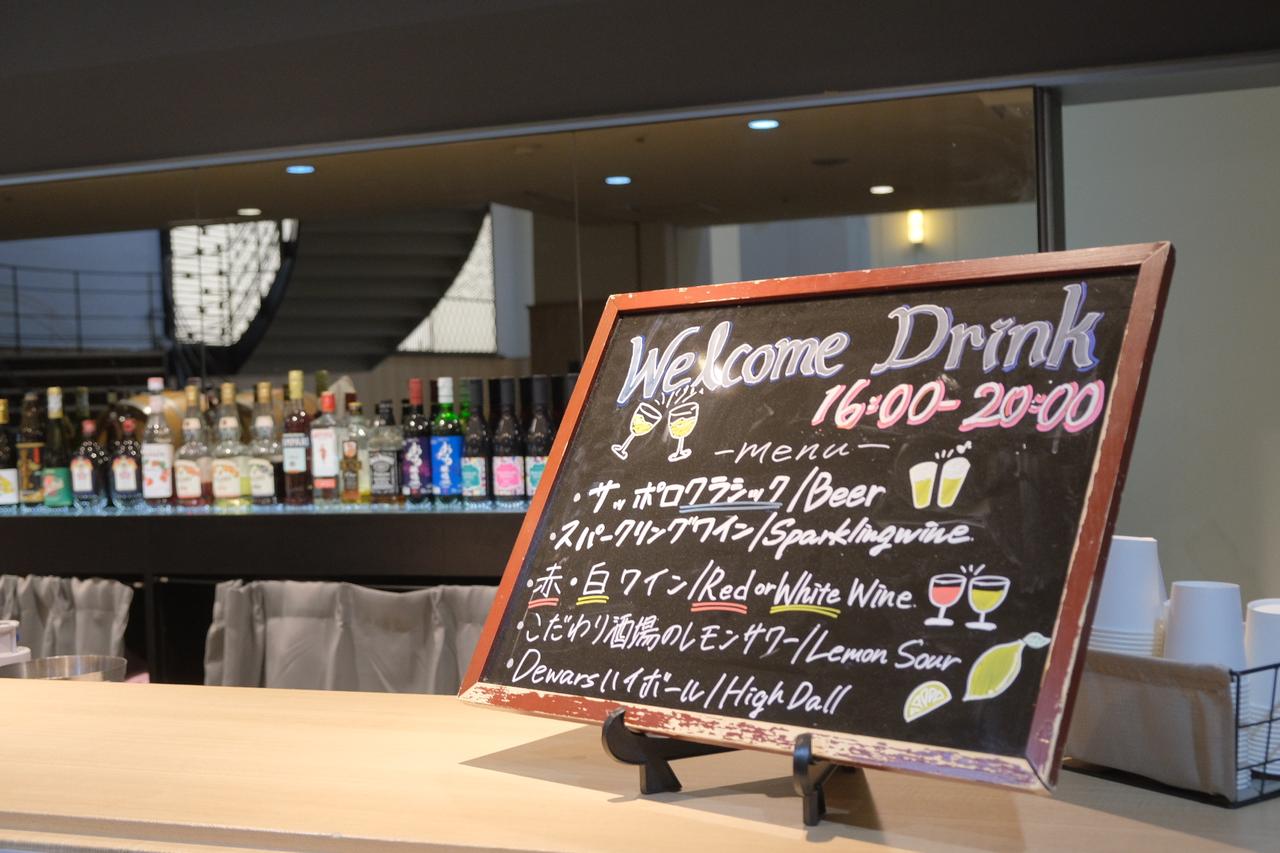 Welcome Drink
16:00-20:00
-menu-
・サッポロクラシック/Beer
・スパークリングワイン/Sparklingwine.
・赤・白ワイン/Red or White Wine.
・こだわり酒場のレモンサワー/Lemon Sour
・Dewarsハイボール/High Dall